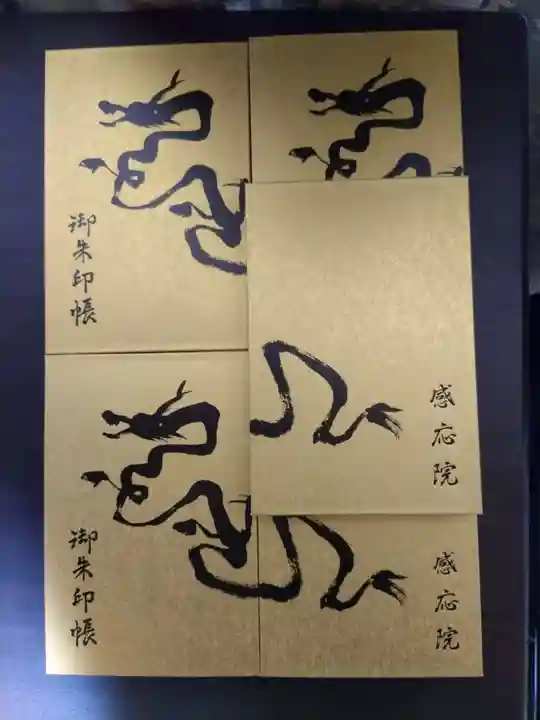 御朱印帳
感応院
御朱印帳
感応院